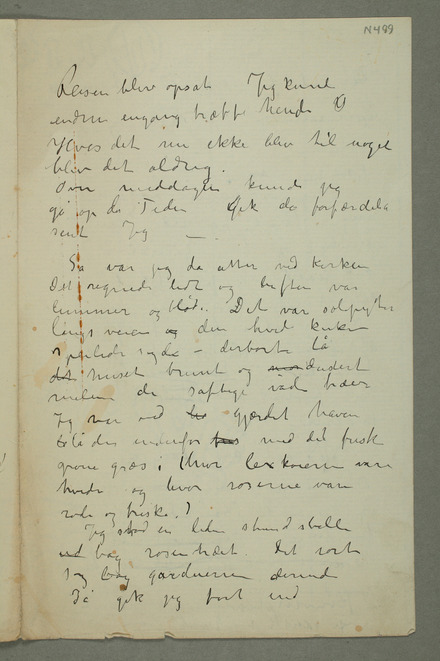 N489
Reisen blev opsat Jeg kunde
endnu engang træffe hende
Hvis det nu ikke blev til noget
blev det aldrig.
Om middagen kunde jeg
gå op da Tiden gik da forfærdelig
sent Jeg —
Så var jeg da atter ved kirken
Det regnede lidt og luften var
lummer og blød. Det var solpytter
langs veien og den hvide kirken
speilede – derborte lå
det huset brunt og
mellem de saftige våde trær
Jeg var ved gjærdet haven
lå der nedenfor med det frisk
grønne græs i hvor levkoierne vare
hvide og hvor roserne vare
røde og friske.
Jeg stod en liden stund stille
ved bag rosentræet. Det sorte
og bag gardinerne derinde
Så gik jeg fort ind